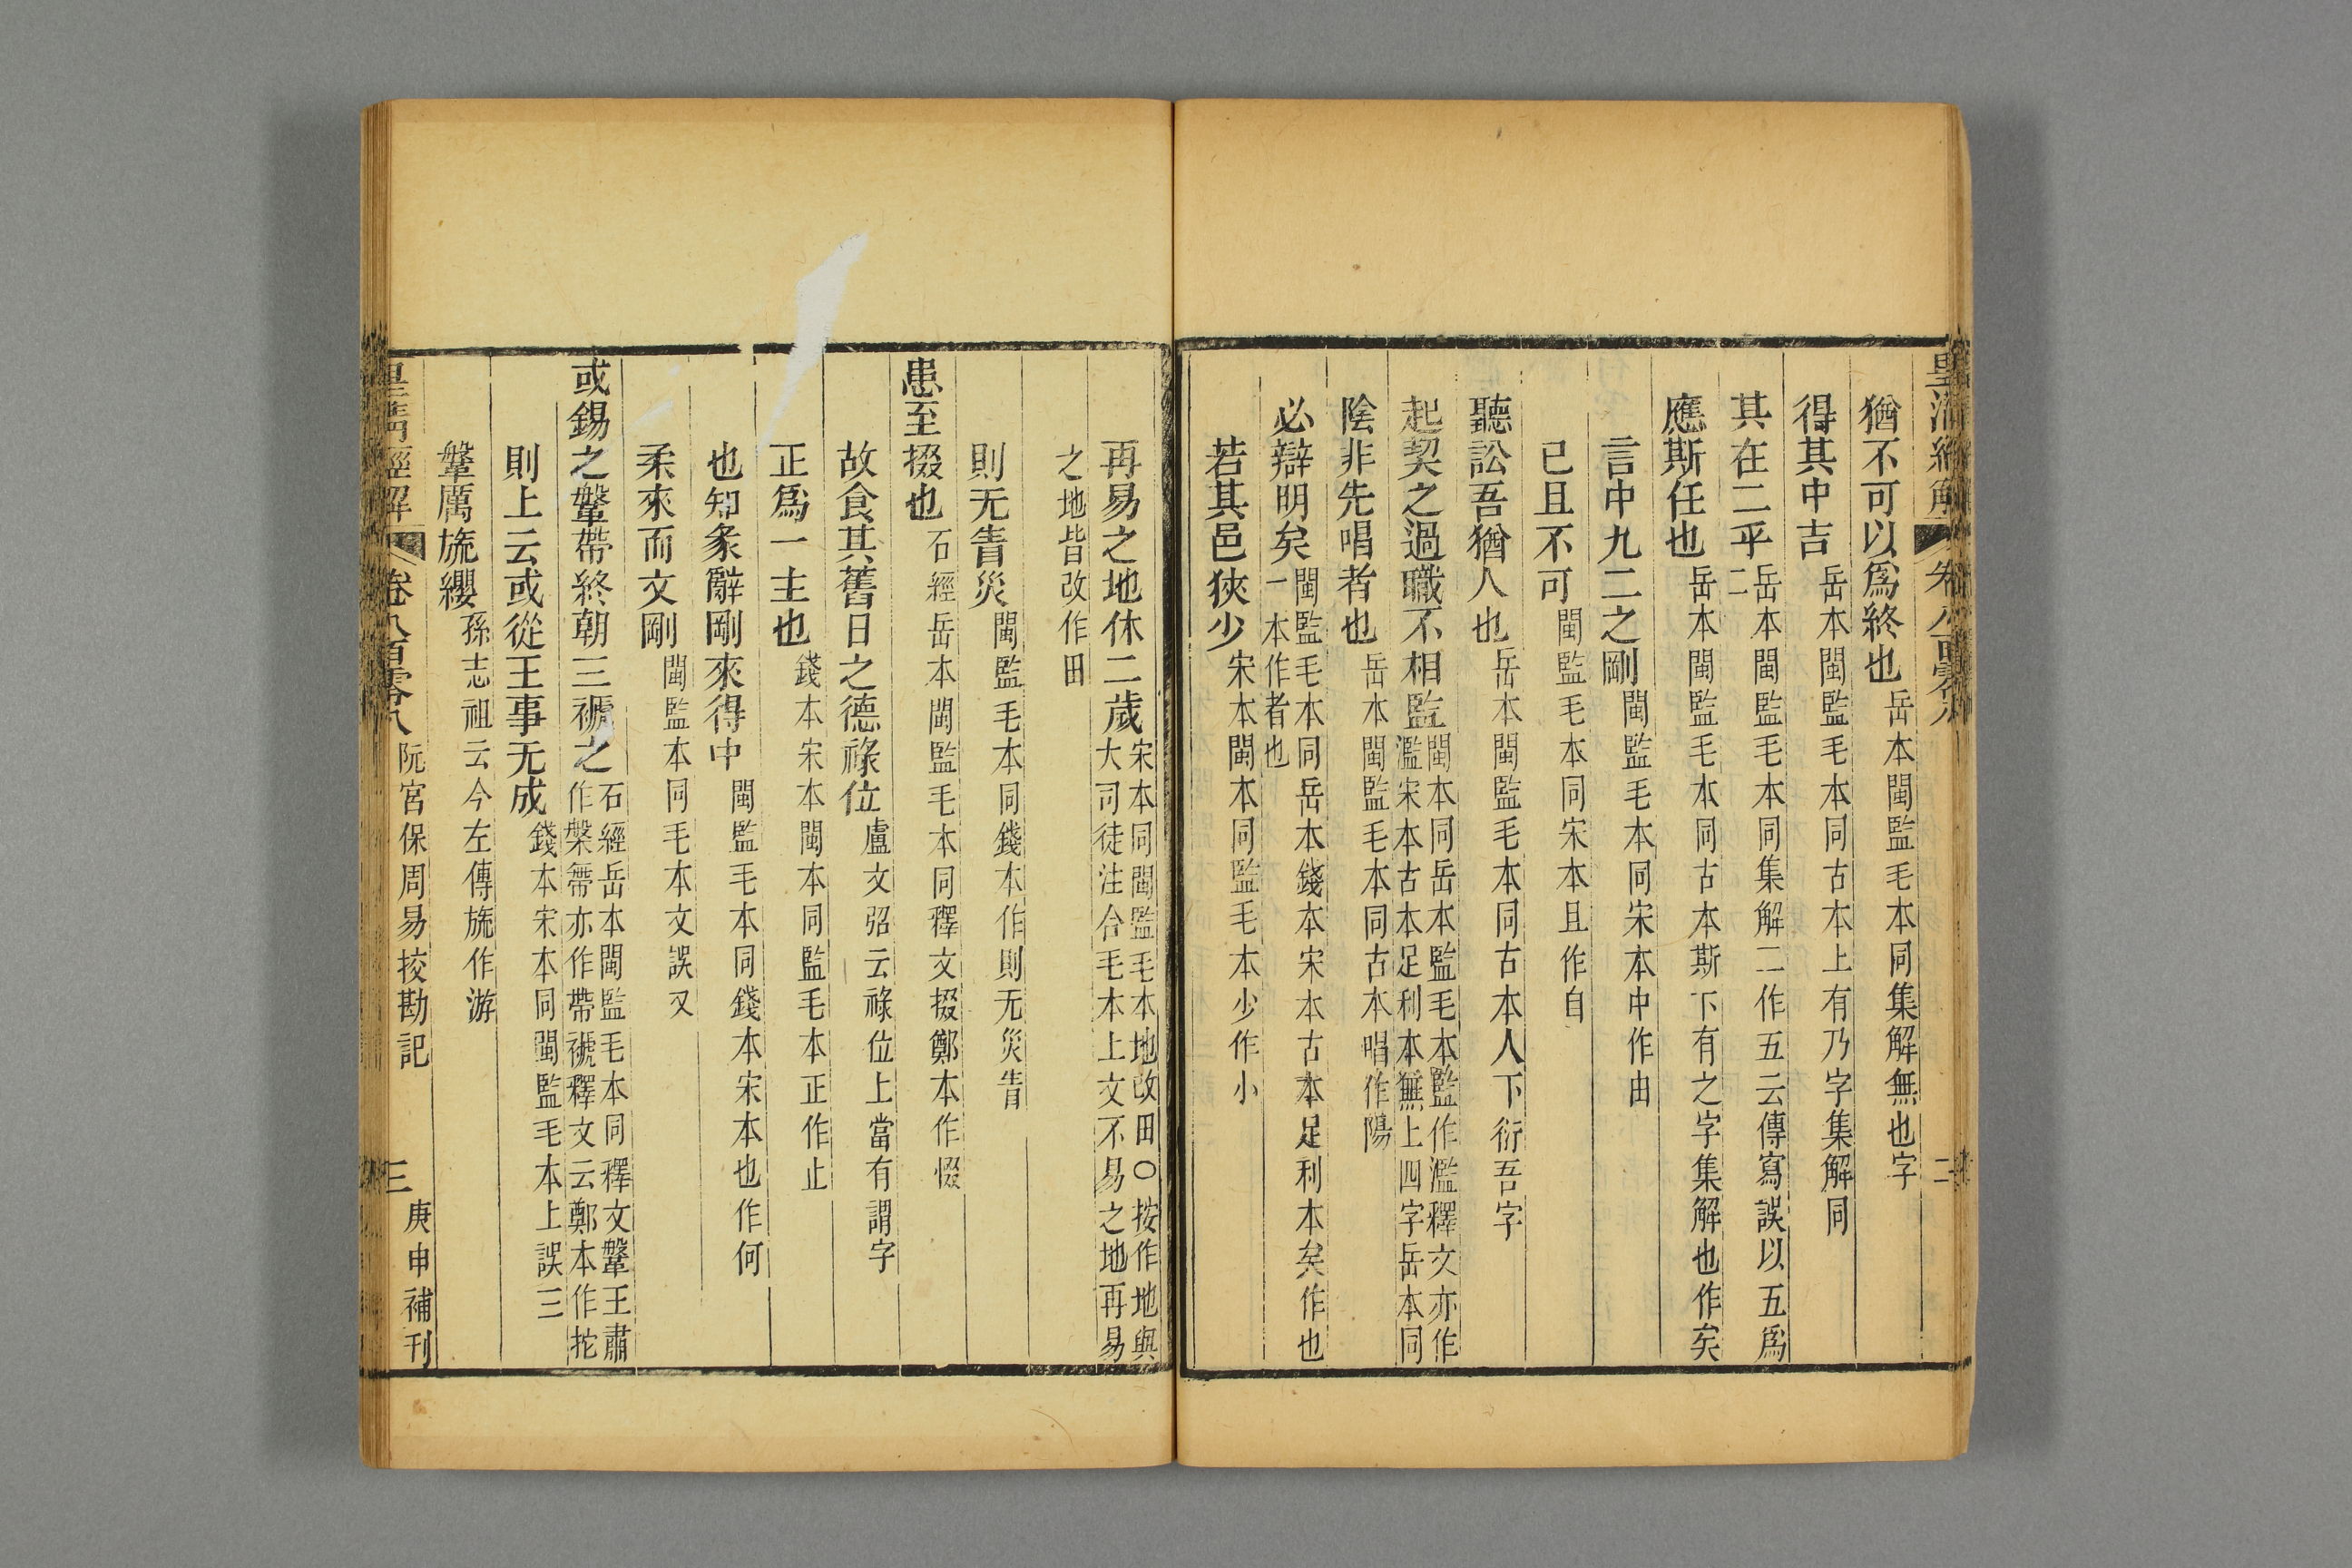 皇清經解 卷八百零八 二
猶不可以爲終也岳本閩監毛本同集解無也字
得其中吉岳本閩監毛本同古本上有乃字集解同
其在二乎岳本閩監毛本同集解二作五云傳寫誤以五爲二
應斯任也岳本閩監毛本同古本斯下有之字集解也作矣
言中九二之剛閩監毛本同宋本中作由
已且不可閩監毛本同宋本且作自
聽訟吾猶人也岳本閩監毛本同古本人下衍吾字
起契之過職不相監閩本同岳本監毛本監作濫釋文亦作濫宋本古本足利本無上四字岳本同
陰非先唱者也岳本閩監毛本同古本唱作陽
必辯明矣閩監毛本同岳本錢本宋本古本足利本矣作也一本作者也
若其邑狹少宋本閩本同監毛本少作小
再易之地休二歲宋本同閩監毛本地改田○按作地與大司徒注合毛本上文不易之地再易
之地皆改作田
則无眚災閩監毛本同錢本作則无災眚
患至掇也石經岳本閩監毛本同釋文掇鄭本作惙
故食其舊日之德祿位盧文弨云祿位上當有謂字
正爲一主也錢本宋本閩本同監毛本正作止
也知彖辭剛來得中閩監毛本同錢本宋本也作何
柔來而文剛閩監本同毛本文誤又
或錫之鞶帶終朝三褫之石經岳本閩監毛本同釋文鞶王肅作槃帶亦作帶褫釋文云鄭本作拕
則上云或從王事无成錢本宋本同閩監毛本上誤三
鞶厲旒纓孫志祖云今左傳旒作游
皇清經解 卷八百零八 阮宮保周易挍勘記 三 庚申補刊